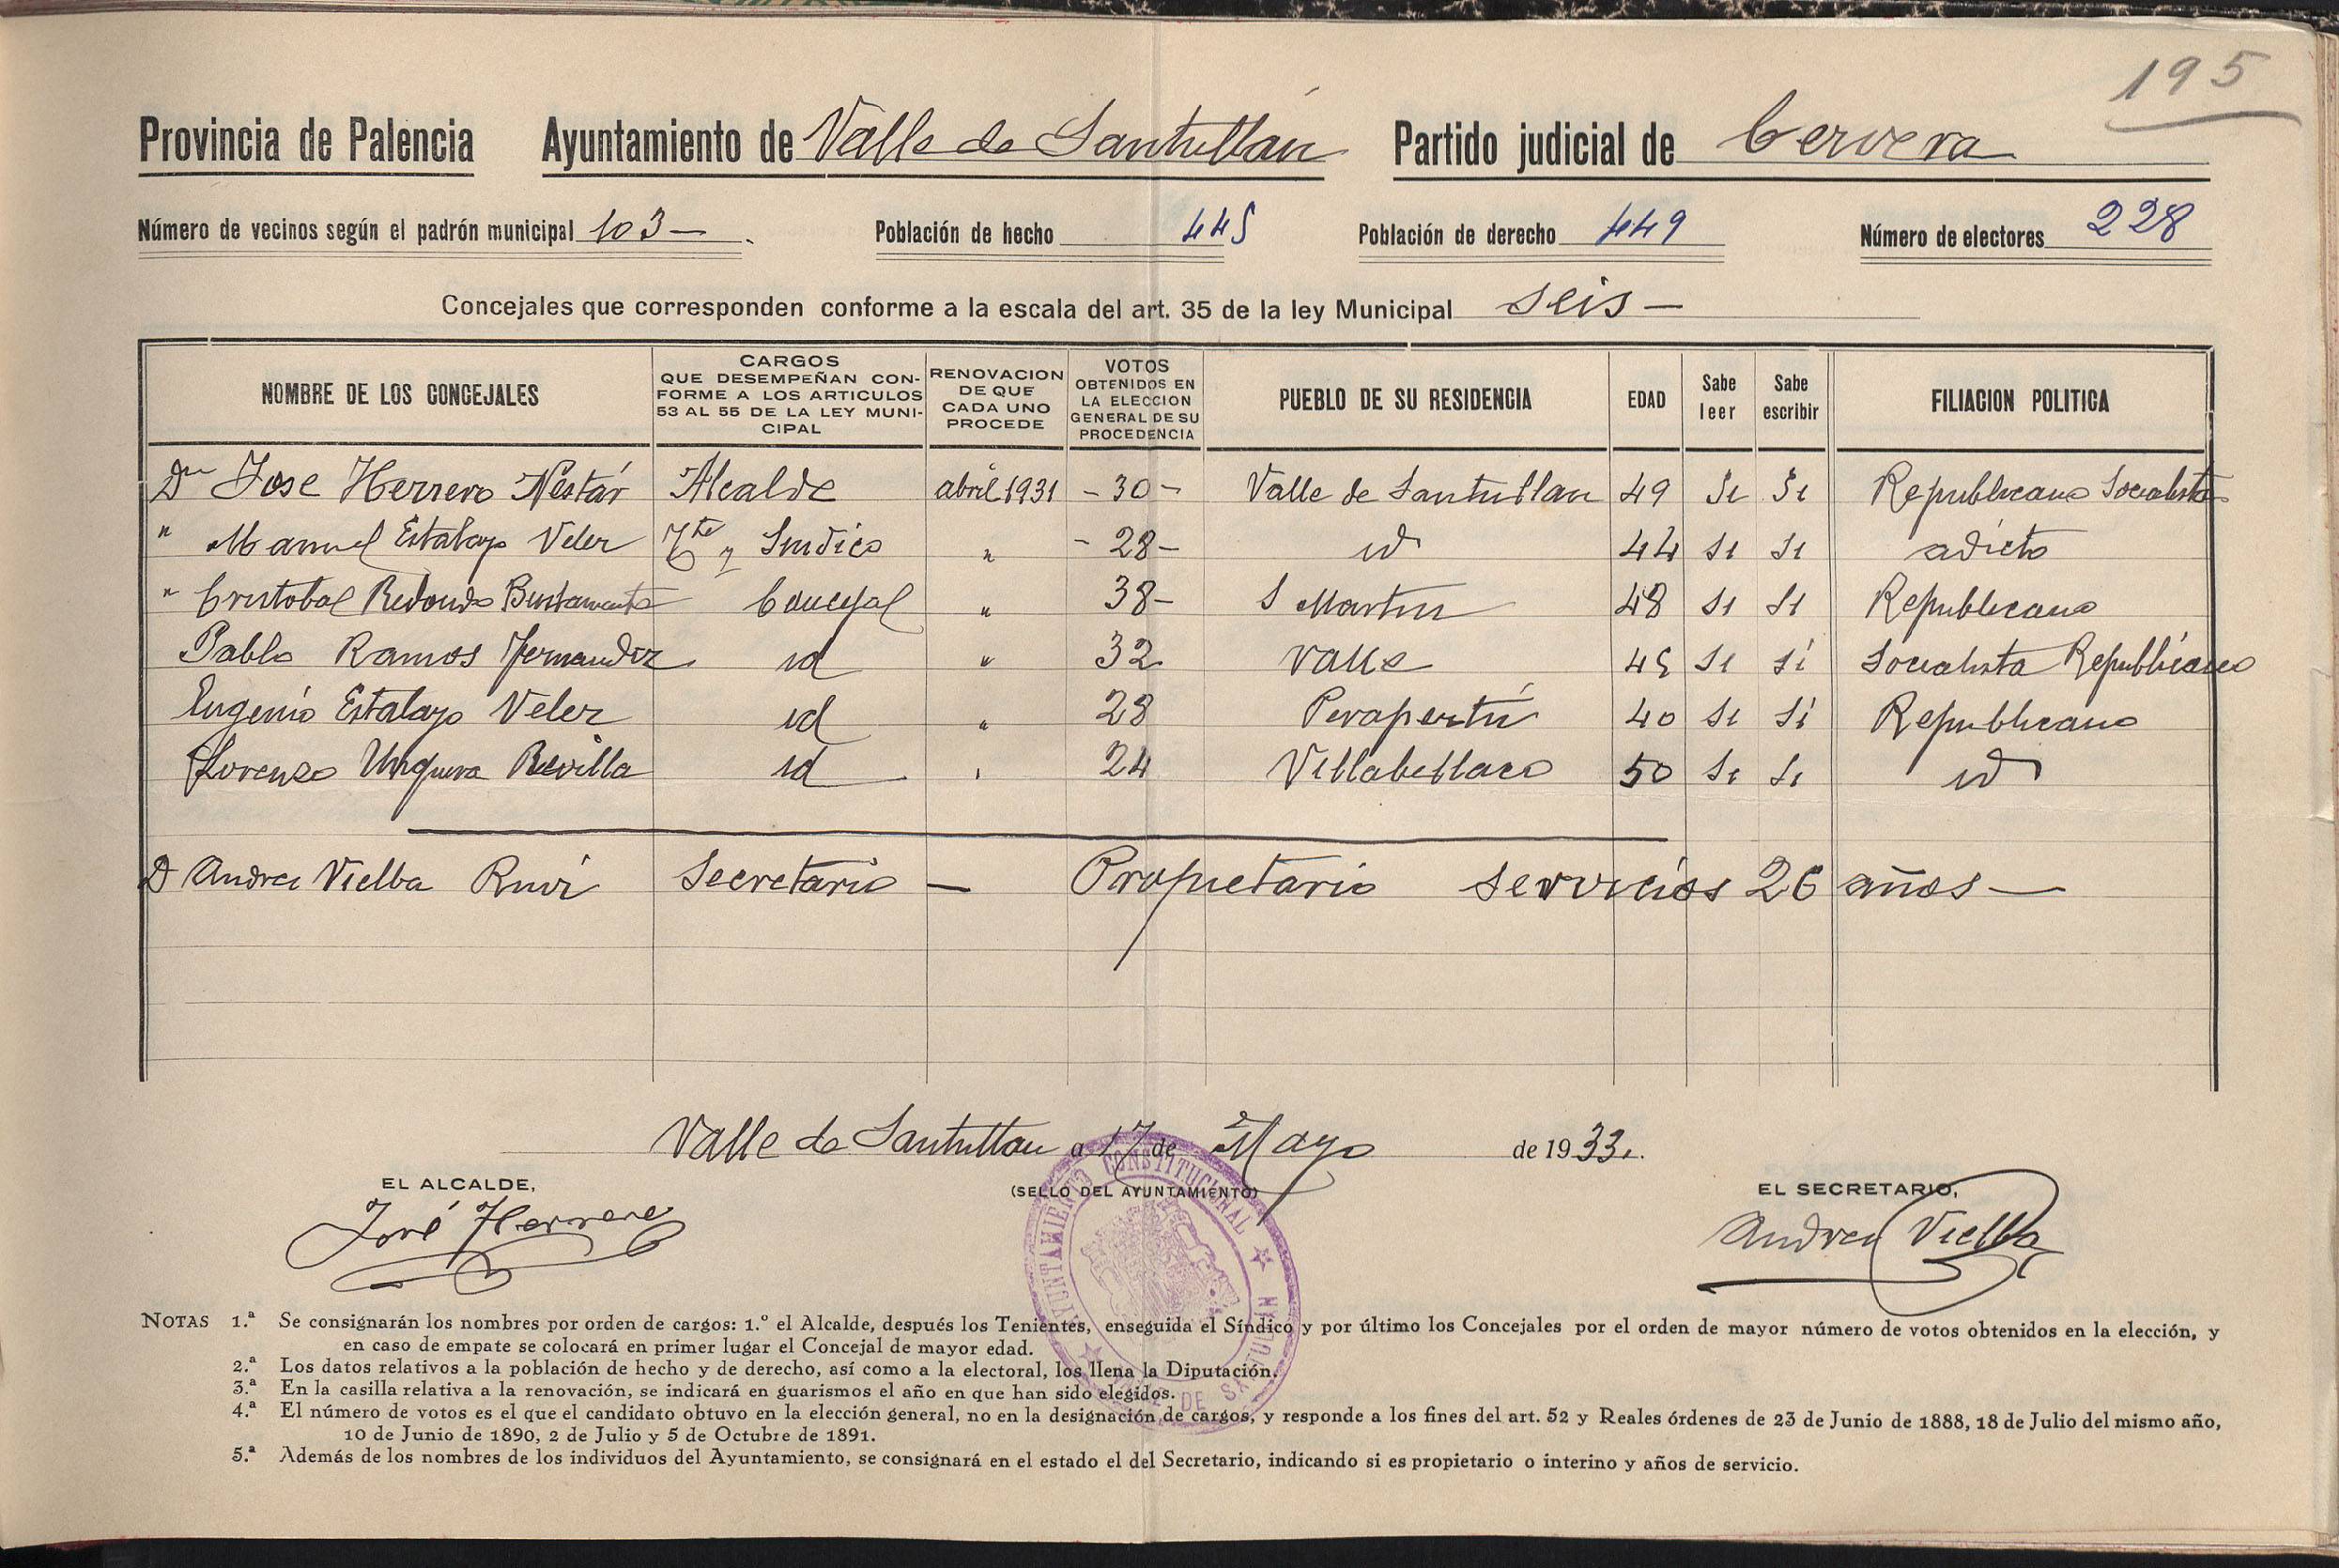 195
Provincia de Palencia Ayuntamiento de Valle de Santullán Partido judicial de Cervera
Número de vecinos según el padrón municipal 103 — . Población de hecho 445 Población de derecho 449 Número de electores 228
Concejales que corresponden conforme a la escala del art. 35 de la ley Municipal seis —
NOMBRE DE LOS CONCEJALES CARGOS QUE DESEMPEÑAN CONFORME A LOS ARTICULOS 53 AL 55 DE LA LEY MUNICIPAL RENOVACION DE QUE CADA UNO PROCEDE VOTOS OBTENIDOS EN LA ELECCION GENERAL DE SU PROCEDENCIA PUEBLO DE SU RESIDENCIA EDAD Sabe leer Sabe escribir FILIACION POLITICA
Dn Jose Herrero Nestár Alcalde abril 1931 - 30 - Valle de Santullan 49 Si Si Republicano Socialista
" Manuel Estalayo Velez Tte y Sindico " - 28 - id 44 si si adicto
" Cristobal Redondo Bustamante Concejal " 38 - S Martin 48 si si Republicano
Pablo Ramos Fernandez id " 32 Valle 45 si sí Socialista Republicano
Eugenio Estalayo Velez id " 28 Perapertú 40 si sí Republicano
Lorenzo Revilla id " 24 Villabellaco 50 si si id
D Andres Vielba Ruiz Secretario — Propietario servicios 26 años —
Valle de Santullan a 17 de Mayo de 1933.
EL ALCALDE, (SELLO DEL AYUNTAMIENTO) EL SECRETARIO,
José Herrero Andres Vielba
AYUNTAMIENTO CONSTITUCIONAL ☆ DE SANTULLÁN ☆
NOTAS 1.ª Se consignarán los nombres por orden de cargos: 1.º el Alcalde, después los Tenientes, enseguida el Síndico y por último los Concejales por el orden de mayor número de votos obtenidos en la elección, y
en caso de empate se colocará en primer lugar el Concejal de mayor edad.
2.ª Los datos relativos a la población de hecho y de derecho, así como a la electoral, los llena la Diputación.
3.ª En la casilla relativa a la renovación, se indicará en guarismos el año en que han sido elegidos.
4.ª El número de votos es el que el candidato obtuvo en la elección general, no en la designación de cargos, y responde a los fines del art. 52 y Reales órdenes de 23 de Junio de 1888, 18 de Julio del mismo año,
10 de Junio de 1890, 2 de Julio y 5 de Octubre de 1891.
5.ª Además de los nombres de los individuos del Ayuntamiento, se consignará en el estado el del Secretario, indicando si es propietario o interino y años de servicio.